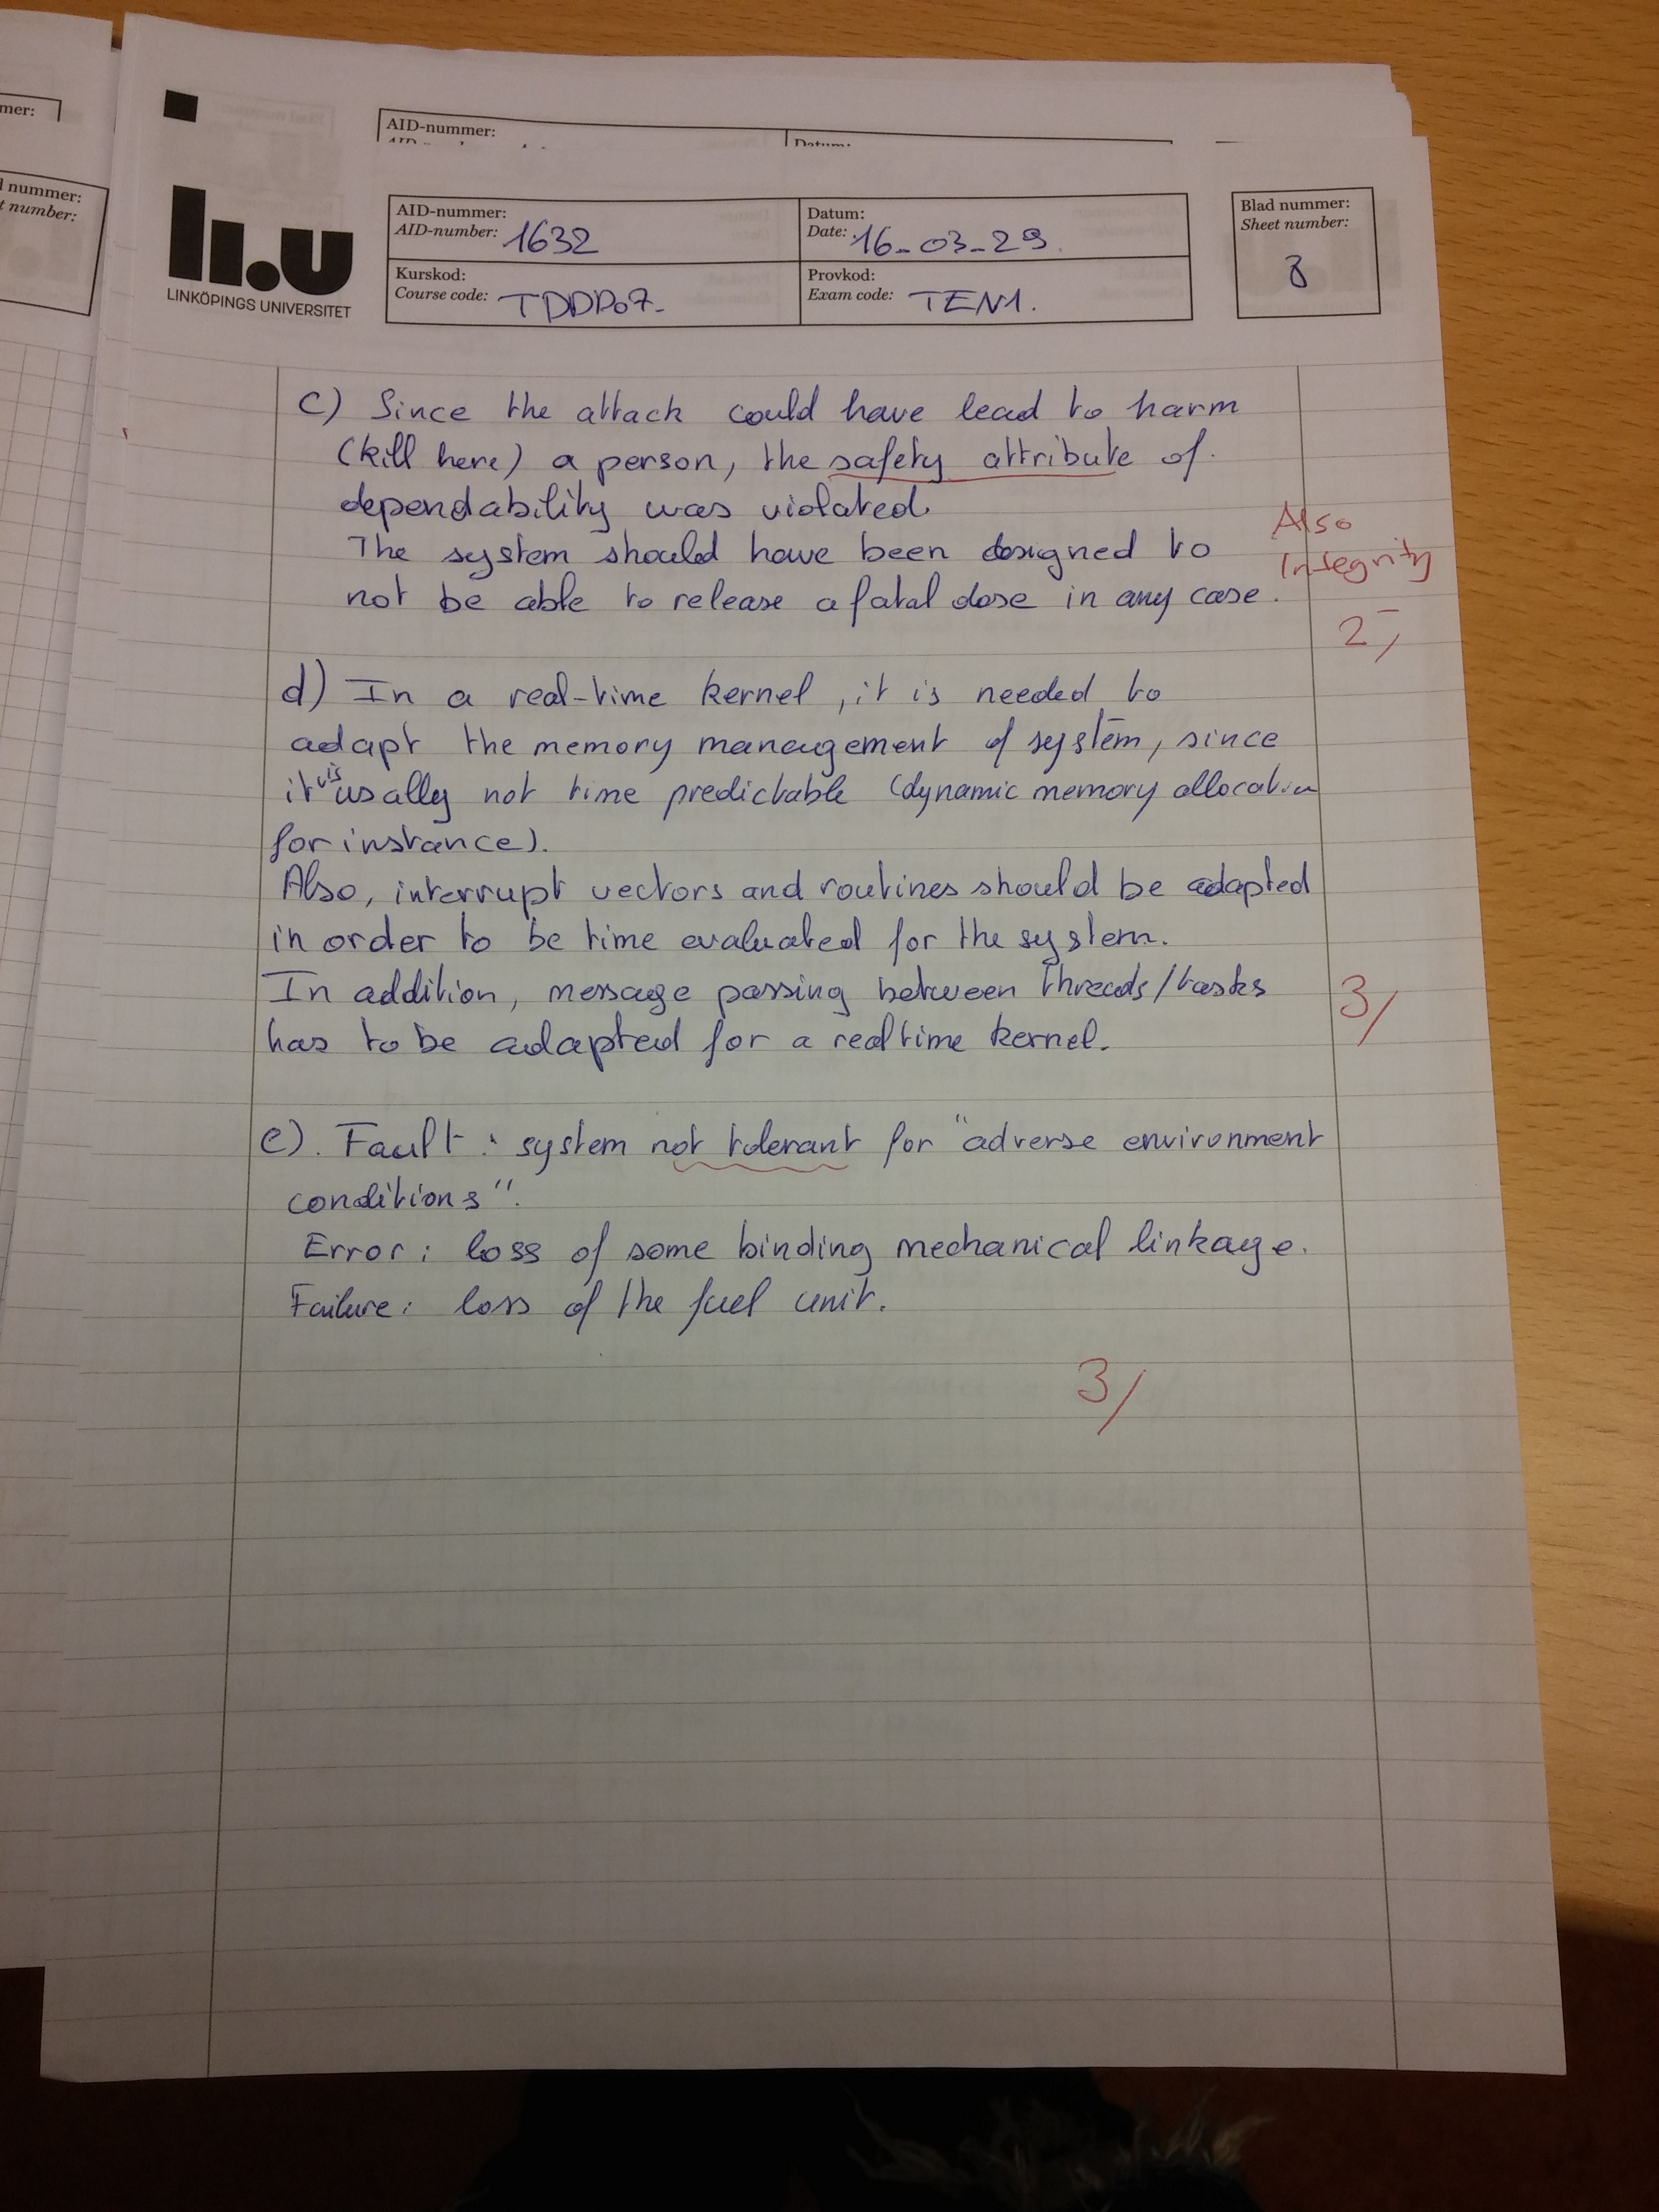 mer:
nummer:
t number:
AID-nummer:
Datum:
li.u
LINKÖPINGS UNIVERSITET
AID-nummer:
AID-number: 1632
Datum:
Date: 16-03-29.
Blad nummer:
Sheet number:
8
Kurskod:
Course code: TDDD07-
Provkod:
Exam code: TEN1.
c) Since the attack could have lead to harm
(kill here) a person, the safety attribute of
dependability was violated.
The system should have been designed to
not be able to release a fatal dose in any case.
Also
Integrity
2-/
d) In a real-time kernel, it is needed to
adapt the memory management of system, since
it is usally not time predictable (dynamic memory allocation
for instance).
Also, interrupt vectors and routines should be adapted
in order to be time evaluated for the system.
In addition, message passing between threads/tasks
has to be adapted for a realtime kernel.
3/
e). Fault: system not tolerant for "adverse environment
conditions".
Error: loss of some binding mechanical linkage.
Failure: loss of the fuel unit.
3/